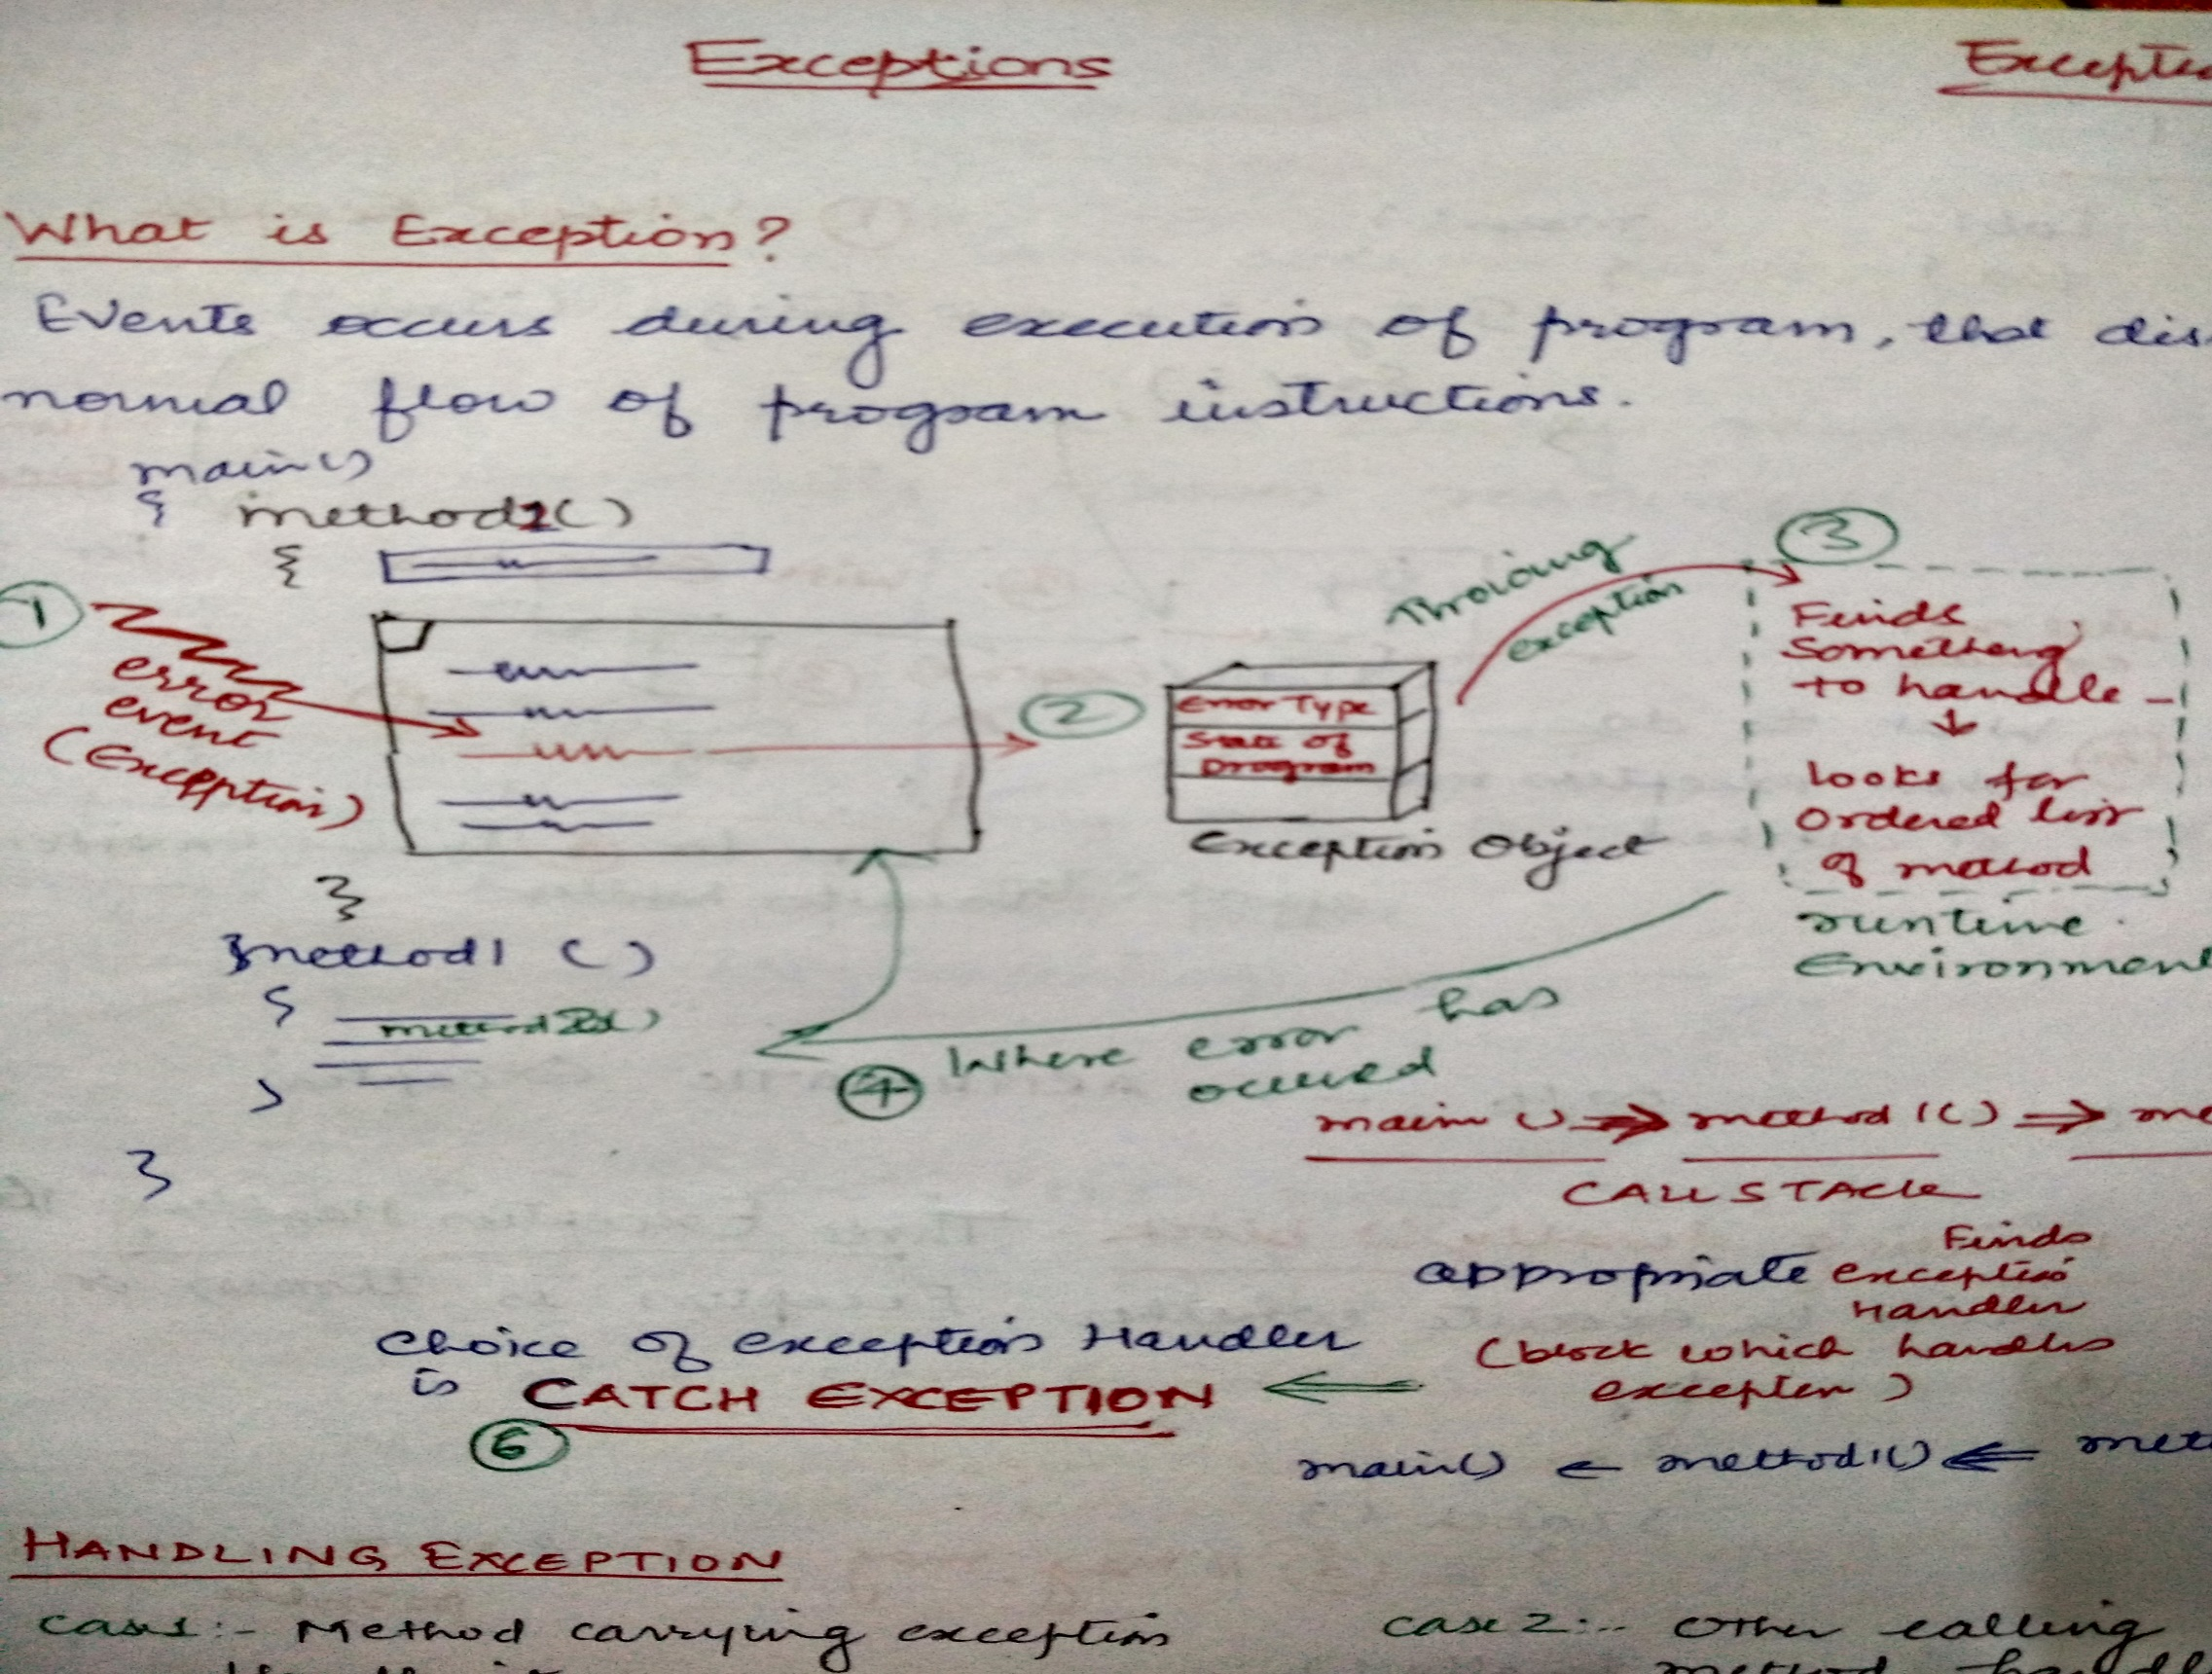 Exceptions
What is Exception?
Events occurs during execution of program, that dis
normal flow of program instructions.
main()
{ method2()
{
1
error
event
(Excepption)
2
Error Type
State of
program
Exception Object
Throwing
exception
3
Finds
Something
to handle
↓
looks for
Ordered list
of method
runtime
Environment
}
method1 ()
{
}
}
4 Where error has
occured
main () ⇒ method1() ⇒ me
CALLSTACK
Finds
appropriate exception
Handler
(block which handles
exception)
Choice of exception Handler
is CATCH EXCEPTION ⇐
6
main() ← method1() ⇐ met
HANDLING EXCEPTION
case1:- Method carrying exception
case 2:- Other calling